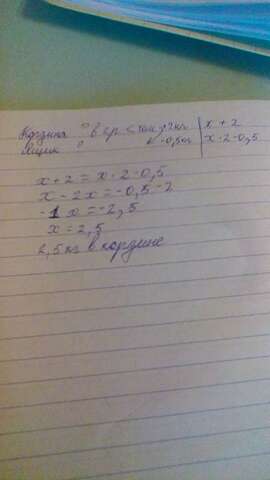 Корзина ? х + 2
Ящик ? - 0,5кг х · 2 - 0,5
х + 2 = х · 2 - 0,5
х - 2х = -0,5 - 2
-1х = -2,5
х = 2,5
2,5 кг в корзине